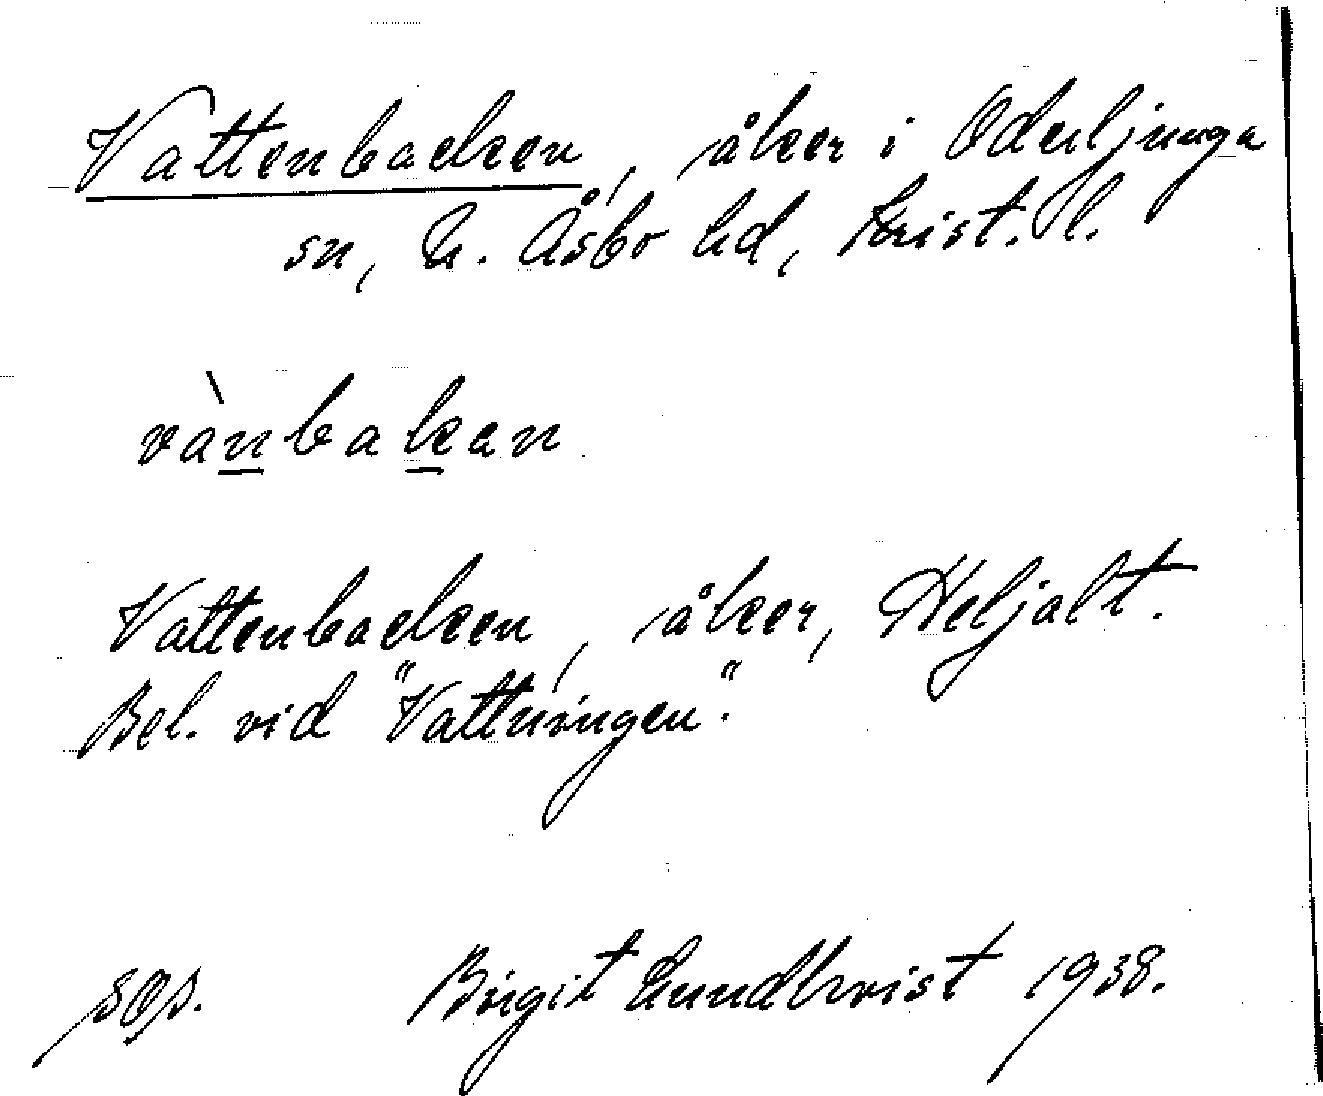 Vattenbacken, åker i Oderljunga
sn, N. Åsbo hd, Krist. l.
vànbakan
Vattenbacken, åker, Heljalt.
Bel. vid "Vattningen".
Birgit Lundkvist 1938.